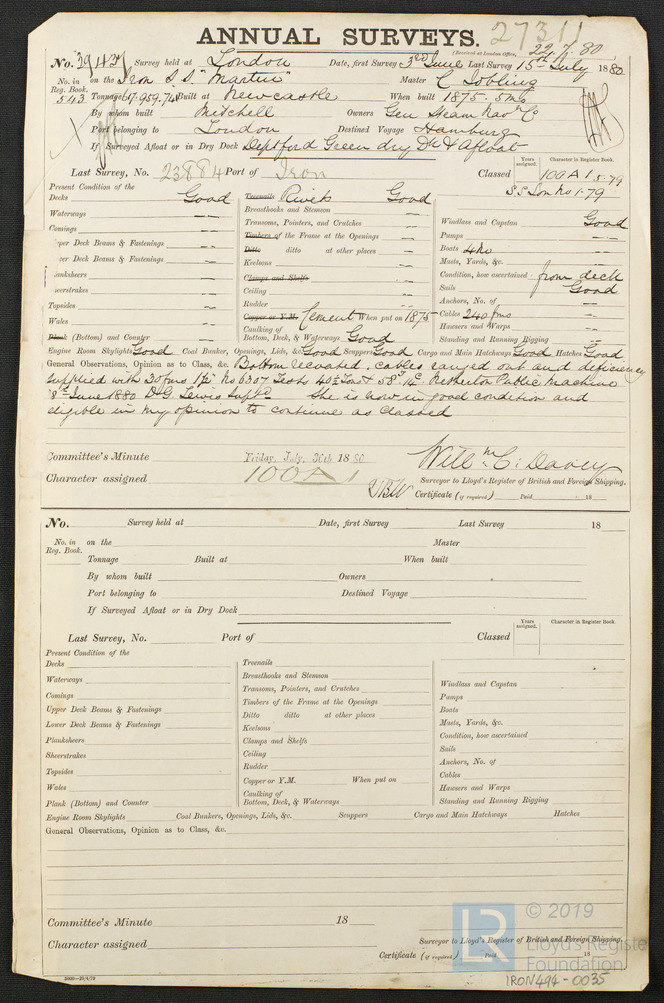 27311
ANNUAL SURVEYS.
(Received at London Office, 22.7.80
No. 39437 Survey held at London Date, first Survey 3rd June Last Survey 15th July 1880
No. in Reg. Book. on the Iron S.S. "Martin" Master C Jobling
543 Tonnage 959.74 Built at Newcastle When built 1875.5mo
By whom built Mitchell Owners Gen Steam Navn Co
Port belonging to London Destined Voyage Hamburg
If Surveyed Afloat or in Dry Dock Deptford Green dry Dk & Afloat
Last Survey, No. 23884 Port of Iron Classed Years assigned. Character in Register Book. 100A1 5-79
S.S. Lon No1-79
Present Condition of the
Decks Good
Waterways "
Comings "
per Deck Beams & Fastenings "
wer Deck Beams & Fastenings "
lanksheers
eerstrakes "
Topsides "
Wales "
Plank (Bottom) and Counter "
Treenails Rivets Good
Breasthooks and Stemson "
Transoms, Pointers, and Crutches "
Timbers of the Frame at the Openings "
Ditto ditto at other places "
Keelsons "
Clamps and Shelfs
Ceiling "
Rudder "
Copper or Y.M. Cement When put on 1875
Caulking of
Bottom, Deck, & Waterways Good
Windlass and Capstan Good
Pumps "
Boats 4 No "
Masts, Yards, &c. "
Condition, how ascertained from deck
Sails Good
Anchors, No. of "
Cables 240 fms "
Hawsers and Warps "
Standing and Running Rigging "
Engine Room Skylights Good Coal Bunker, Openings, Lids, &c Good Scuppers Good Cargo and Main Hatchways Good Hatches Good
General Observations, Opinion as to Class, &c. Bottom recoated. Cables ranged out and deficiency
supplied with 30 fms No 6307 Tests Netherton Public Machine
8th June 1880 D.G. Lewis Suptd She is now in good condition and
eligible in my opinion to continue as classed
Committee's Minute Friday, July, 30th 1880
Character assigned 100A1
Willm C. Davey
Surveyor to Lloyd's Register of British and Foreign Shipping.
Certificate (if required) Paid 18
No. Survey held at Date, first Survey Last Survey 18
No. in Reg. Book. on the Master
Tonnage Built at When built
By whom built Owners
Port belonging to Destined Voyage
If Surveyed Afloat or in Dry Dock
Last Survey, No. Port of Classed Years assigned. Character in Register Book.
Present Condition of the
Decks
Waterways
Comings
Upper Deck Beams & Fastenings
Lower Deck Beams & Fastenings
Planksheers
Sheerstrakes
Topsides
Wales
Plank (Bottom) and Counter
Treenails
Breasthooks and Stemson
Transoms, Pointers, and Crutches
Timbers of the Frame at the Openings
Ditto ditto at other places
Keelsons
Clamps and Shelfs
Ceiling
Rudder
Copper or Y.M. When put on
Caulking of
Bottom, Deck, & Waterways
Windlass and Capstan
Pumps
Boats
Masts, Yards, &c.
Condition, how ascertained
Sails
Anchors, No. of
Cables
Hawsers and Warps
Standing and Running Rigging
Engine Room Skylights Coal Bunkers, Openings, Lids, &c. Scuppers Cargo and Main Hatchways Hatches
General Observations, Opinion as to Class, &c.
Committee's Minute 18
Character assigned
Surveyor to Lloyd's Register of British and Foreign Shipping.
Certificate (if required) Paid 18
LR © 2019
Lloyd's Register
Foundation
IRON494-0035